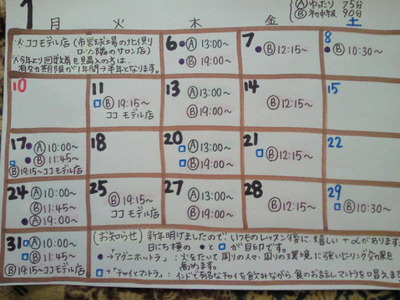 1
Ⓐゆったり 75分
Ⓑ初中級 90分
月 火 木 金 土
※ココモデル店(市営球場の北側り
ローソン隣のサロン店)
※今年より回数券を購入の方は
有効期限が1年間→半年となります。
6 ● Ⓐ 13:00〜
● Ⓑ 19:00〜
7 ● Ⓑ 12:15〜
8 ● Ⓑ 10:30〜
10
11
□ Ⓑ 19:15〜
ココモデル店
13 Ⓐ 13:00〜
Ⓑ 19:00〜
14 Ⓑ 12:15〜
15
17 ● Ⓐ 10:00〜
● Ⓑ 11:45〜
□ Ⓑ 19:15〜ココモデル店
18
20 □ Ⓐ 13:00〜
□ Ⓑ 19:00〜
21 □ Ⓑ 12:15〜
22
24 Ⓐ 10:00〜
Ⓑ 11:45〜
● Ⓐ 19:00〜
25 Ⓑ 19:15〜
ココモデル店
27 Ⓐ 13:00〜
Ⓑ 19:00〜
28 Ⓑ 12:15〜
29
□ Ⓑ 10:30〜
31 □ Ⓐ 10:00〜
□ Ⓑ 11:45〜
Ⓑ 19:15〜ココモデル店
(お知らせ) 新年明けましたので、いつものレッスン後に、嬉しい+αがあります。
日にち横の ● と □ が目印です。
● →「アグニホートラ」:火をたいて周りの人や、周りの環境に強いヒーリング効果を
高めます。
□ →「チャイとマントラ」:インドで列なるチャイを飲みながら、食のお話しマントラを唱えます